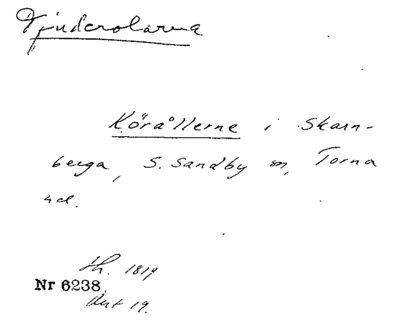 Tjuderolarna
Körållerne i Skarn-
berga, S. Sandby sn, Torna
hd.
Sk. 1819
Nr 6238.
Akt 19.